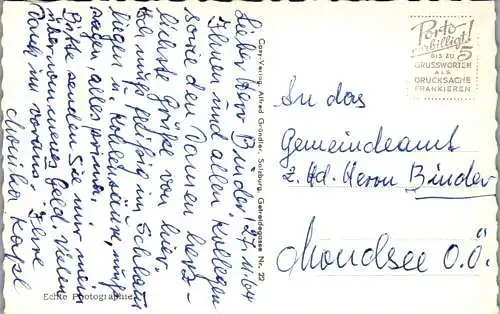 Lieber Herr Binder! 27.11.64
Ihnen und allen Kollegen
sowie den Damen herz-
lichste Grüße von hier.
Ich muß fleißig im Schlamm
liegen u. Kohlensäure
sagen, alles prima.
Bitte senden Sie mir mein
übernommenes Geld. Vielen
Dank im voraus. Ihre
Monika
Echte Photographie
Cosy-Verlag, Alfred Gründler, Salzburg, Getreidegasse Nr. 22
Porto
verbilligt!
BIS ZU 5
GRUSSWORTEN
ALS
DRUCKSACHE
FRANKIEREN
An das
Gemeindeamt
z. Hd. Herrn Binder
Mondsee O.Ö.